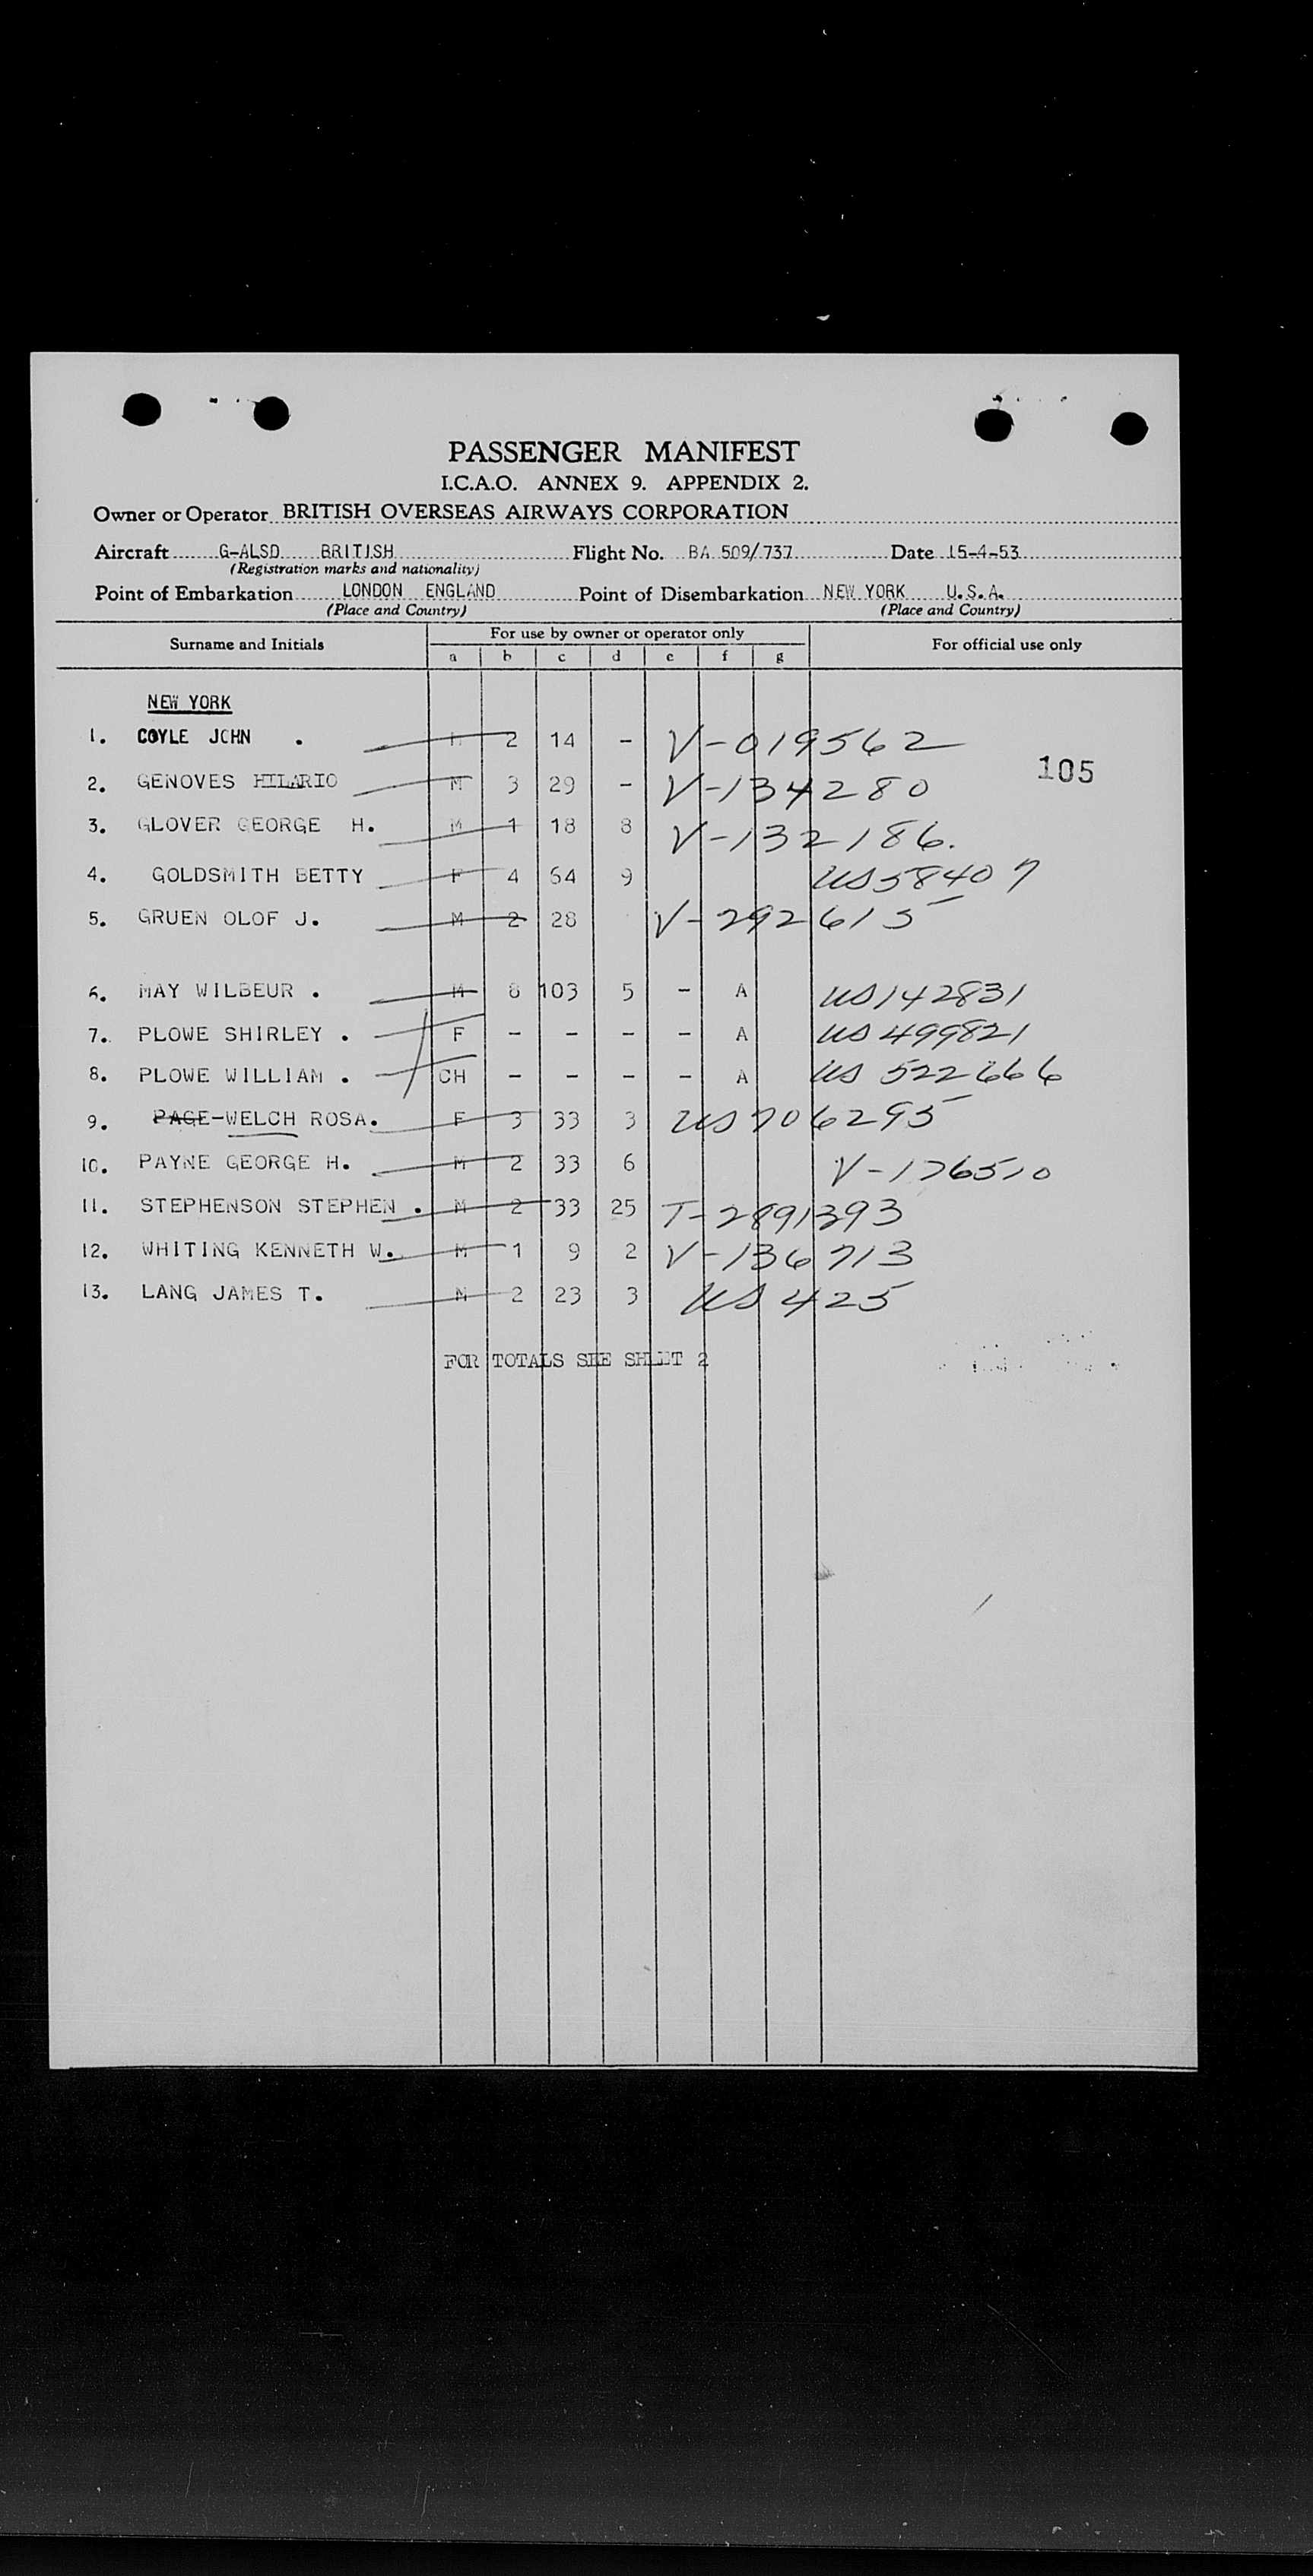 PASSENGER MANIFEST
I.C.A.O. ANNEX 9. APPENDIX 2.
Owner or Operator BRITISH OVERSEAS AIRWAYS CORPORATION
Aircraft G-ALSD BRITISH Flight No. BA 509/737 Date 15-4-53
(Registration marks and nationality)
Point of Embarkation LONDON ENGLAND Point of Disembarkation NEW YORK U.S.A.
(Place and Country) (Place and Country)
Surname and Initials For use by owner or operator only For official use only
a b c d e f g
NEW YORK
1. COYLE JOHN . M 2 14 - V-019562
105
2. GENOVES HILARIO M 3 29 - V-134280
3. GLOVER GEORGE H. M 1 18 8 V-132186.
4. GOLDSMITH BETTY F 4 64 9 US58407
5. GRUEN OLOF J. M 2 28 V-292615
6. MAY WILBEUR . M 8 103 5 - A US142831
7. PLOWE SHIRLEY . F - - - - A US 499821
8. PLOWE WILLIAM . CH - - - - A US 522666
9. PAGE-WELCH ROSA. F 3 33 3 US706295
10. PAYNE GEORGE H. M 2 33 6 V-176510
11. STEPHENSON STEPHEN . M 2 33 25 T-2891393
12. WHITING KENNETH W. M 1 9 2 V-136713
13. LANG JAMES T. M 2 23 3 US 425
FOR TOTALS SEE SHEET 2